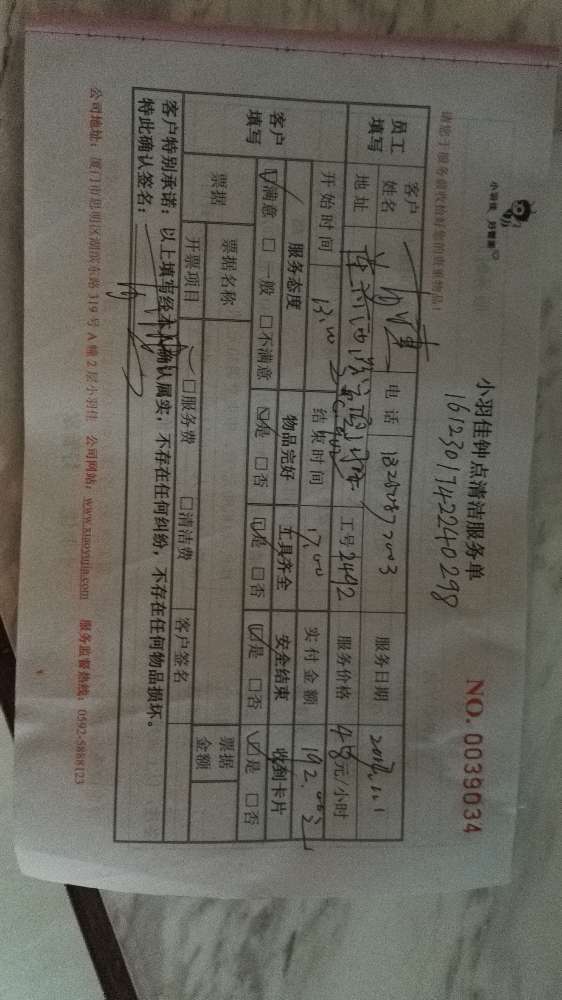 小羽佳 好管家
小羽佳钟点清洁服务单
1612301742240298
NO. 0039034
请您于服务前收检好您的贵重物品！
员工填写
客户姓名
电话
服务日期
地址
工号 2492
服务价格 48元/小时
客户填写
开始时间 13:00
结束时间 17:00
实付金额 192.00
服务态度 物品完好 工具齐全 安全结束 收到卡片
☑满意 □一般 □不满意 ☑是 □否 ☑是 □否 ☑是 □否 ☑是 □否
票据
票据名称
票据金额
开票项目 □服务费 □清洁费
客户签名
客户特别承诺：以上填写经本人确认属实，不存在任何纠纷，不存在任何物品损坏。
特此确认签名：
公司地址：厦门市思明区湖滨东路 319 号 A 幢 2 层小羽佳 公司网站：www.xiaoyujia.com 服务监督热线：0592-5888123